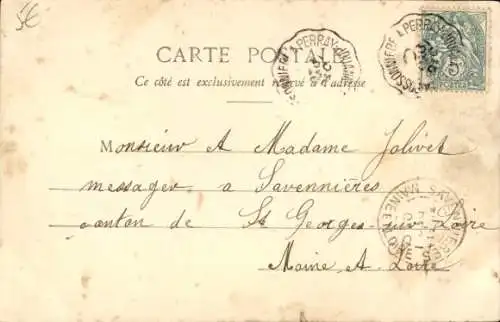 5€
CARTE POSTALE
Ce côté est exclusivement réservé à l'adresse
Monsieur et Madame Jolivet
messager a Savennières
canton de St Georges sur Loire
Maine et Loire
POSSONNIÈRE A PERRAY-JOUANNET
POSSONNIÈRE A PERRAY-JOUANNET
SAVENNIERES
MAINE ET LOIRE